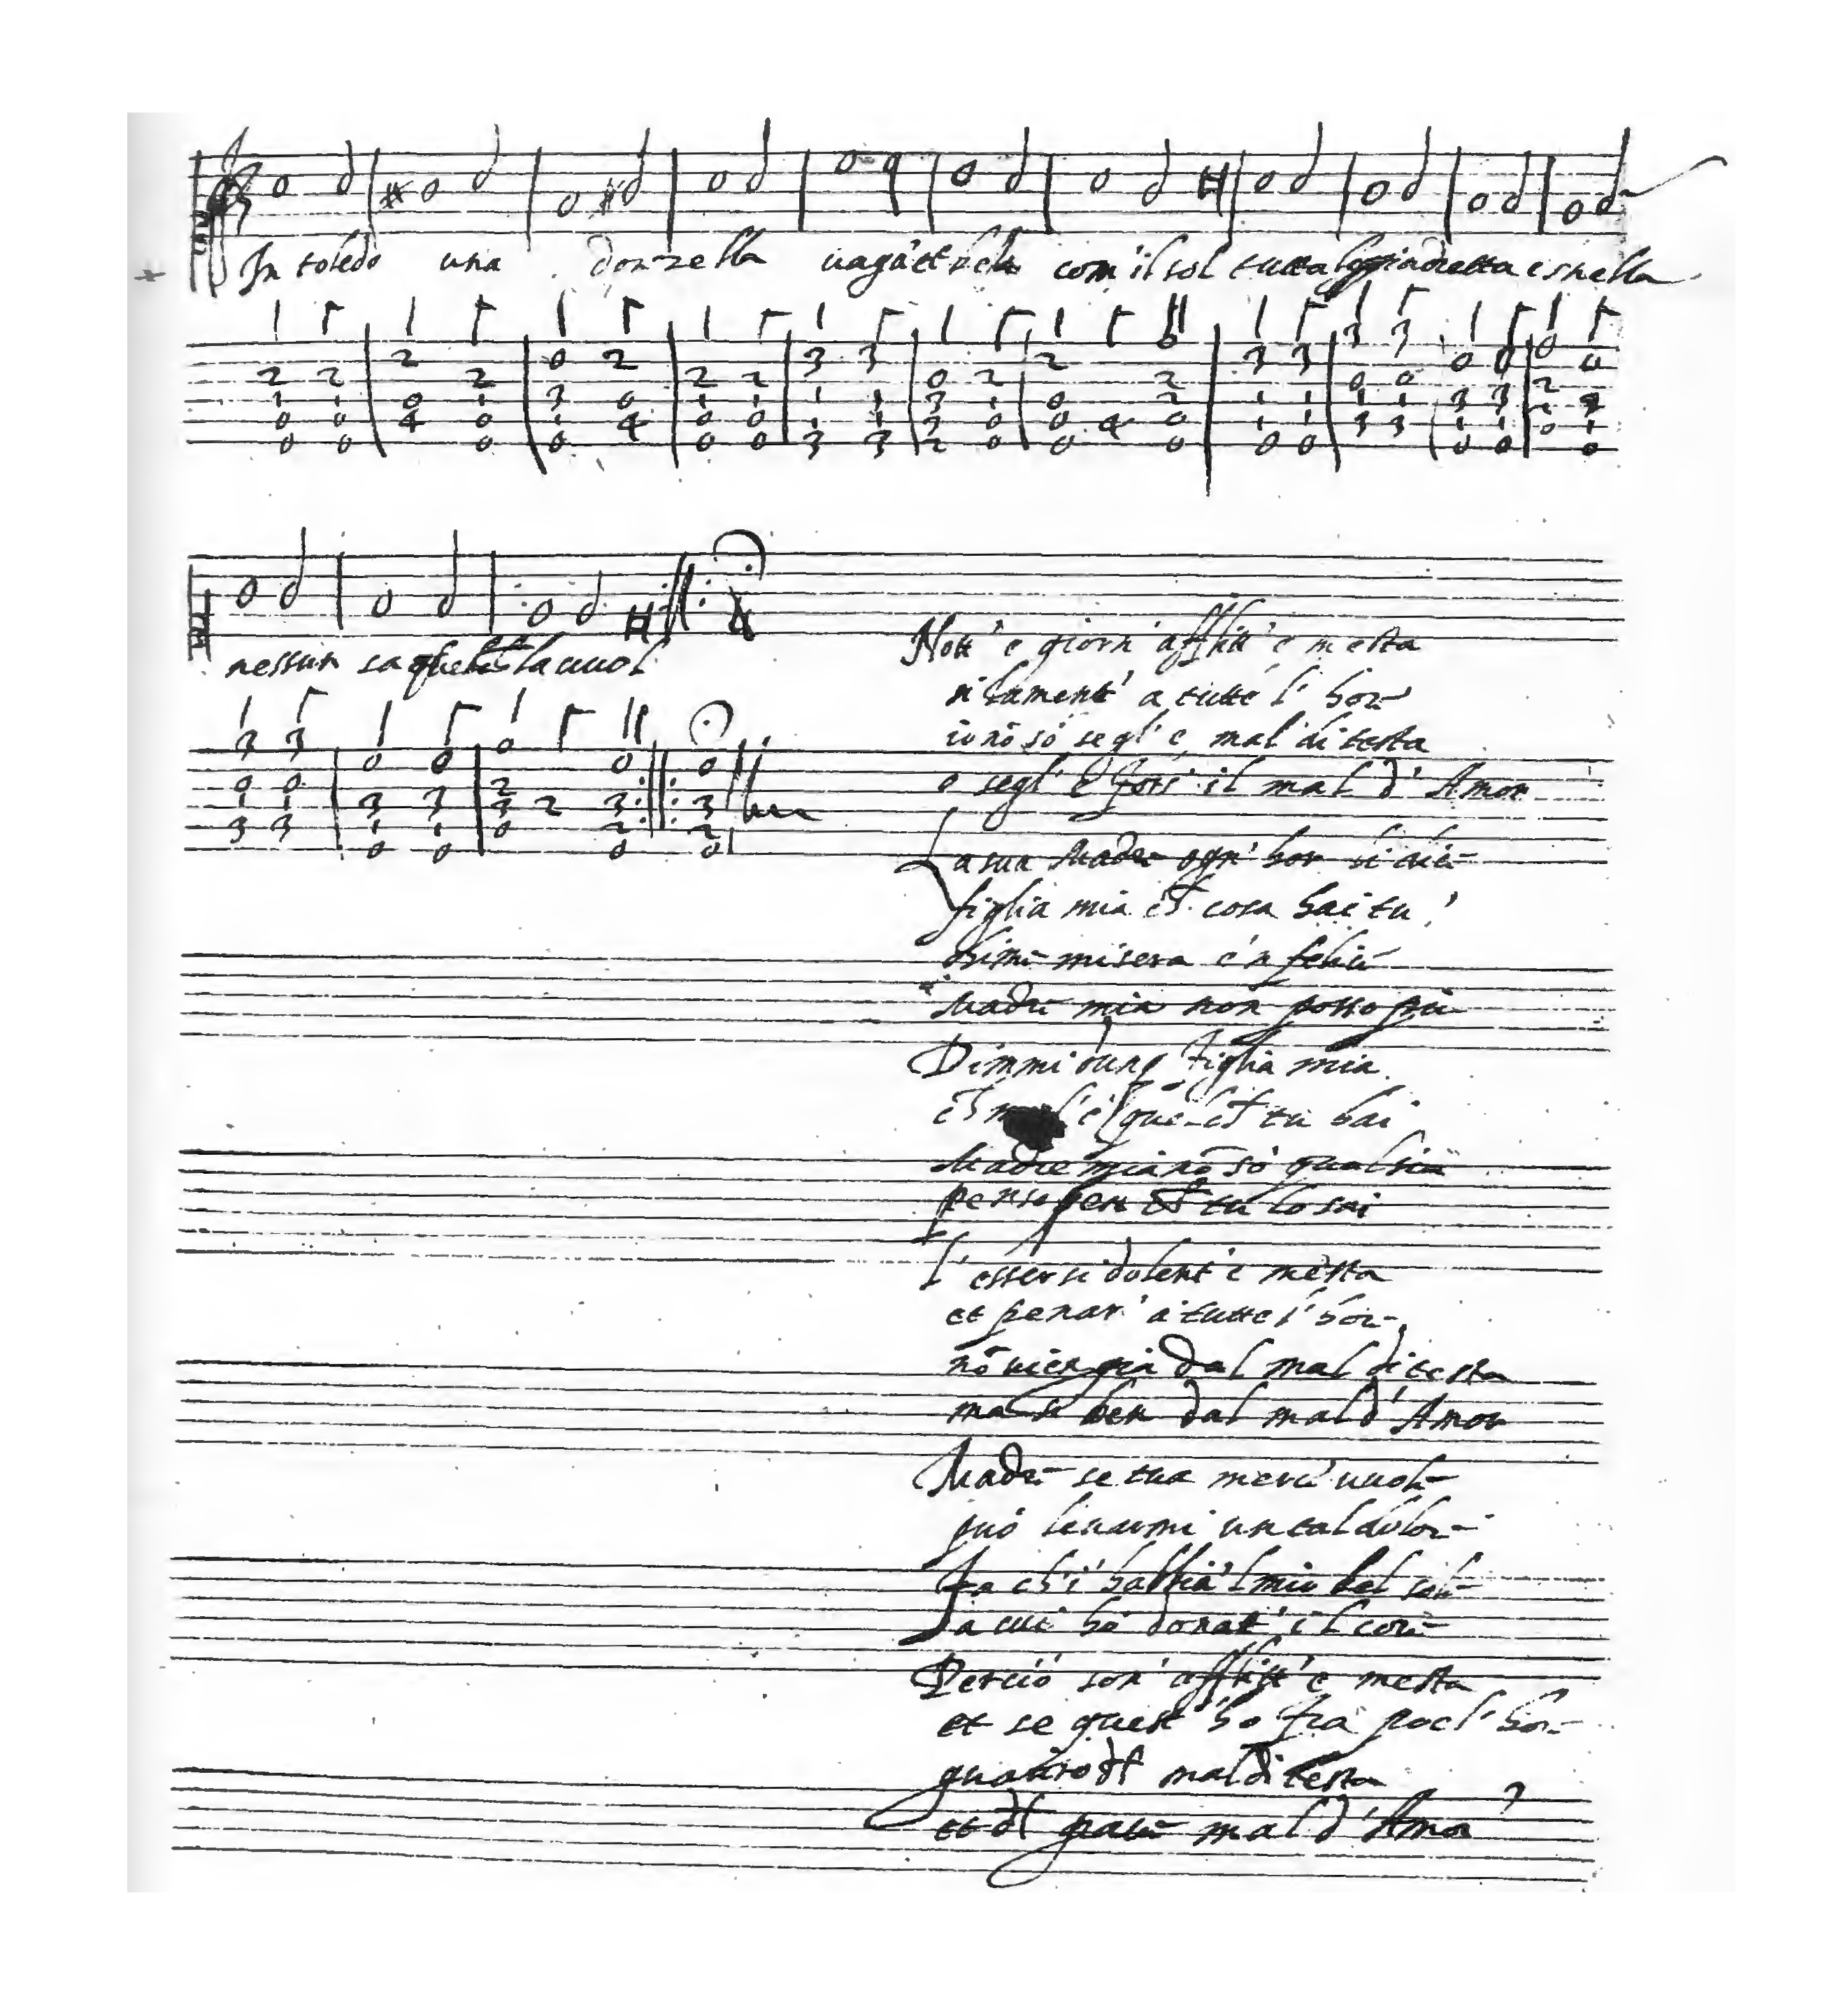 In toledo una donzella vag'et bella com il sol tutta leggiadretta e snella
nessun sa quel che la vuol
Nott' e giorn' afflitt' e mesta
si lament' a tutte l' hor
io nō só segl' e mal di testa
o segl' e fors' il mal d' Amor
La sua Madre ogn' hor li dice
figlia mia ch cosa hai tu ?
ohime misera e'nfelice
Madre mia non posso piu
Dimmi dunq figlia mia
ch mal' e'l quel ch tu hai
Madre mia nō só qual sia
penso pero ch tu lo sai
l' esser si dolent' e mesta
et penar' a tutte l' hor
nō vien gia dal mal di testa
ma si ben dal mal d' Amor
Madre se tua merce vuole
può levarmi un tal dolore
Fa ch'i' habbia'l mio bel sole
a cui hó donat' il core
Perció son' afflitt' e mesta
et se quest' hó fra poch' hor
guariró dl mal di testa
et dl pare mal d' Amor